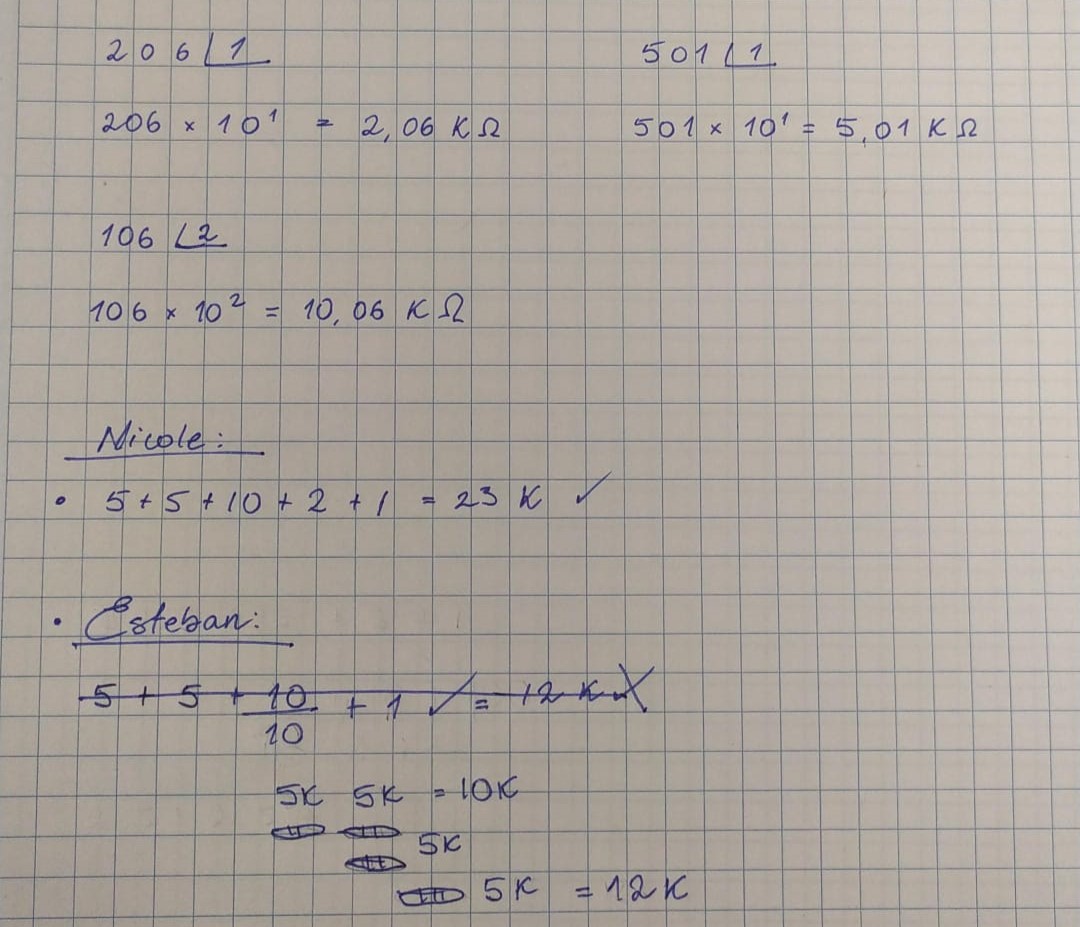 206 | 1
501 | 1
206 × 10¹ = 2,06 KΩ
501 × 10¹ = 5,01 KΩ
106 | 2
106 × 10² = 10,06 KΩ
Nicole:
• 5 + 5 + 10 + 2 + 1 = 23 K ✓
• Esteban:
5 + 5 + 10/10 + 1 ✓ = 12 K X
5K 5K = 10K
5K
5K = 12K